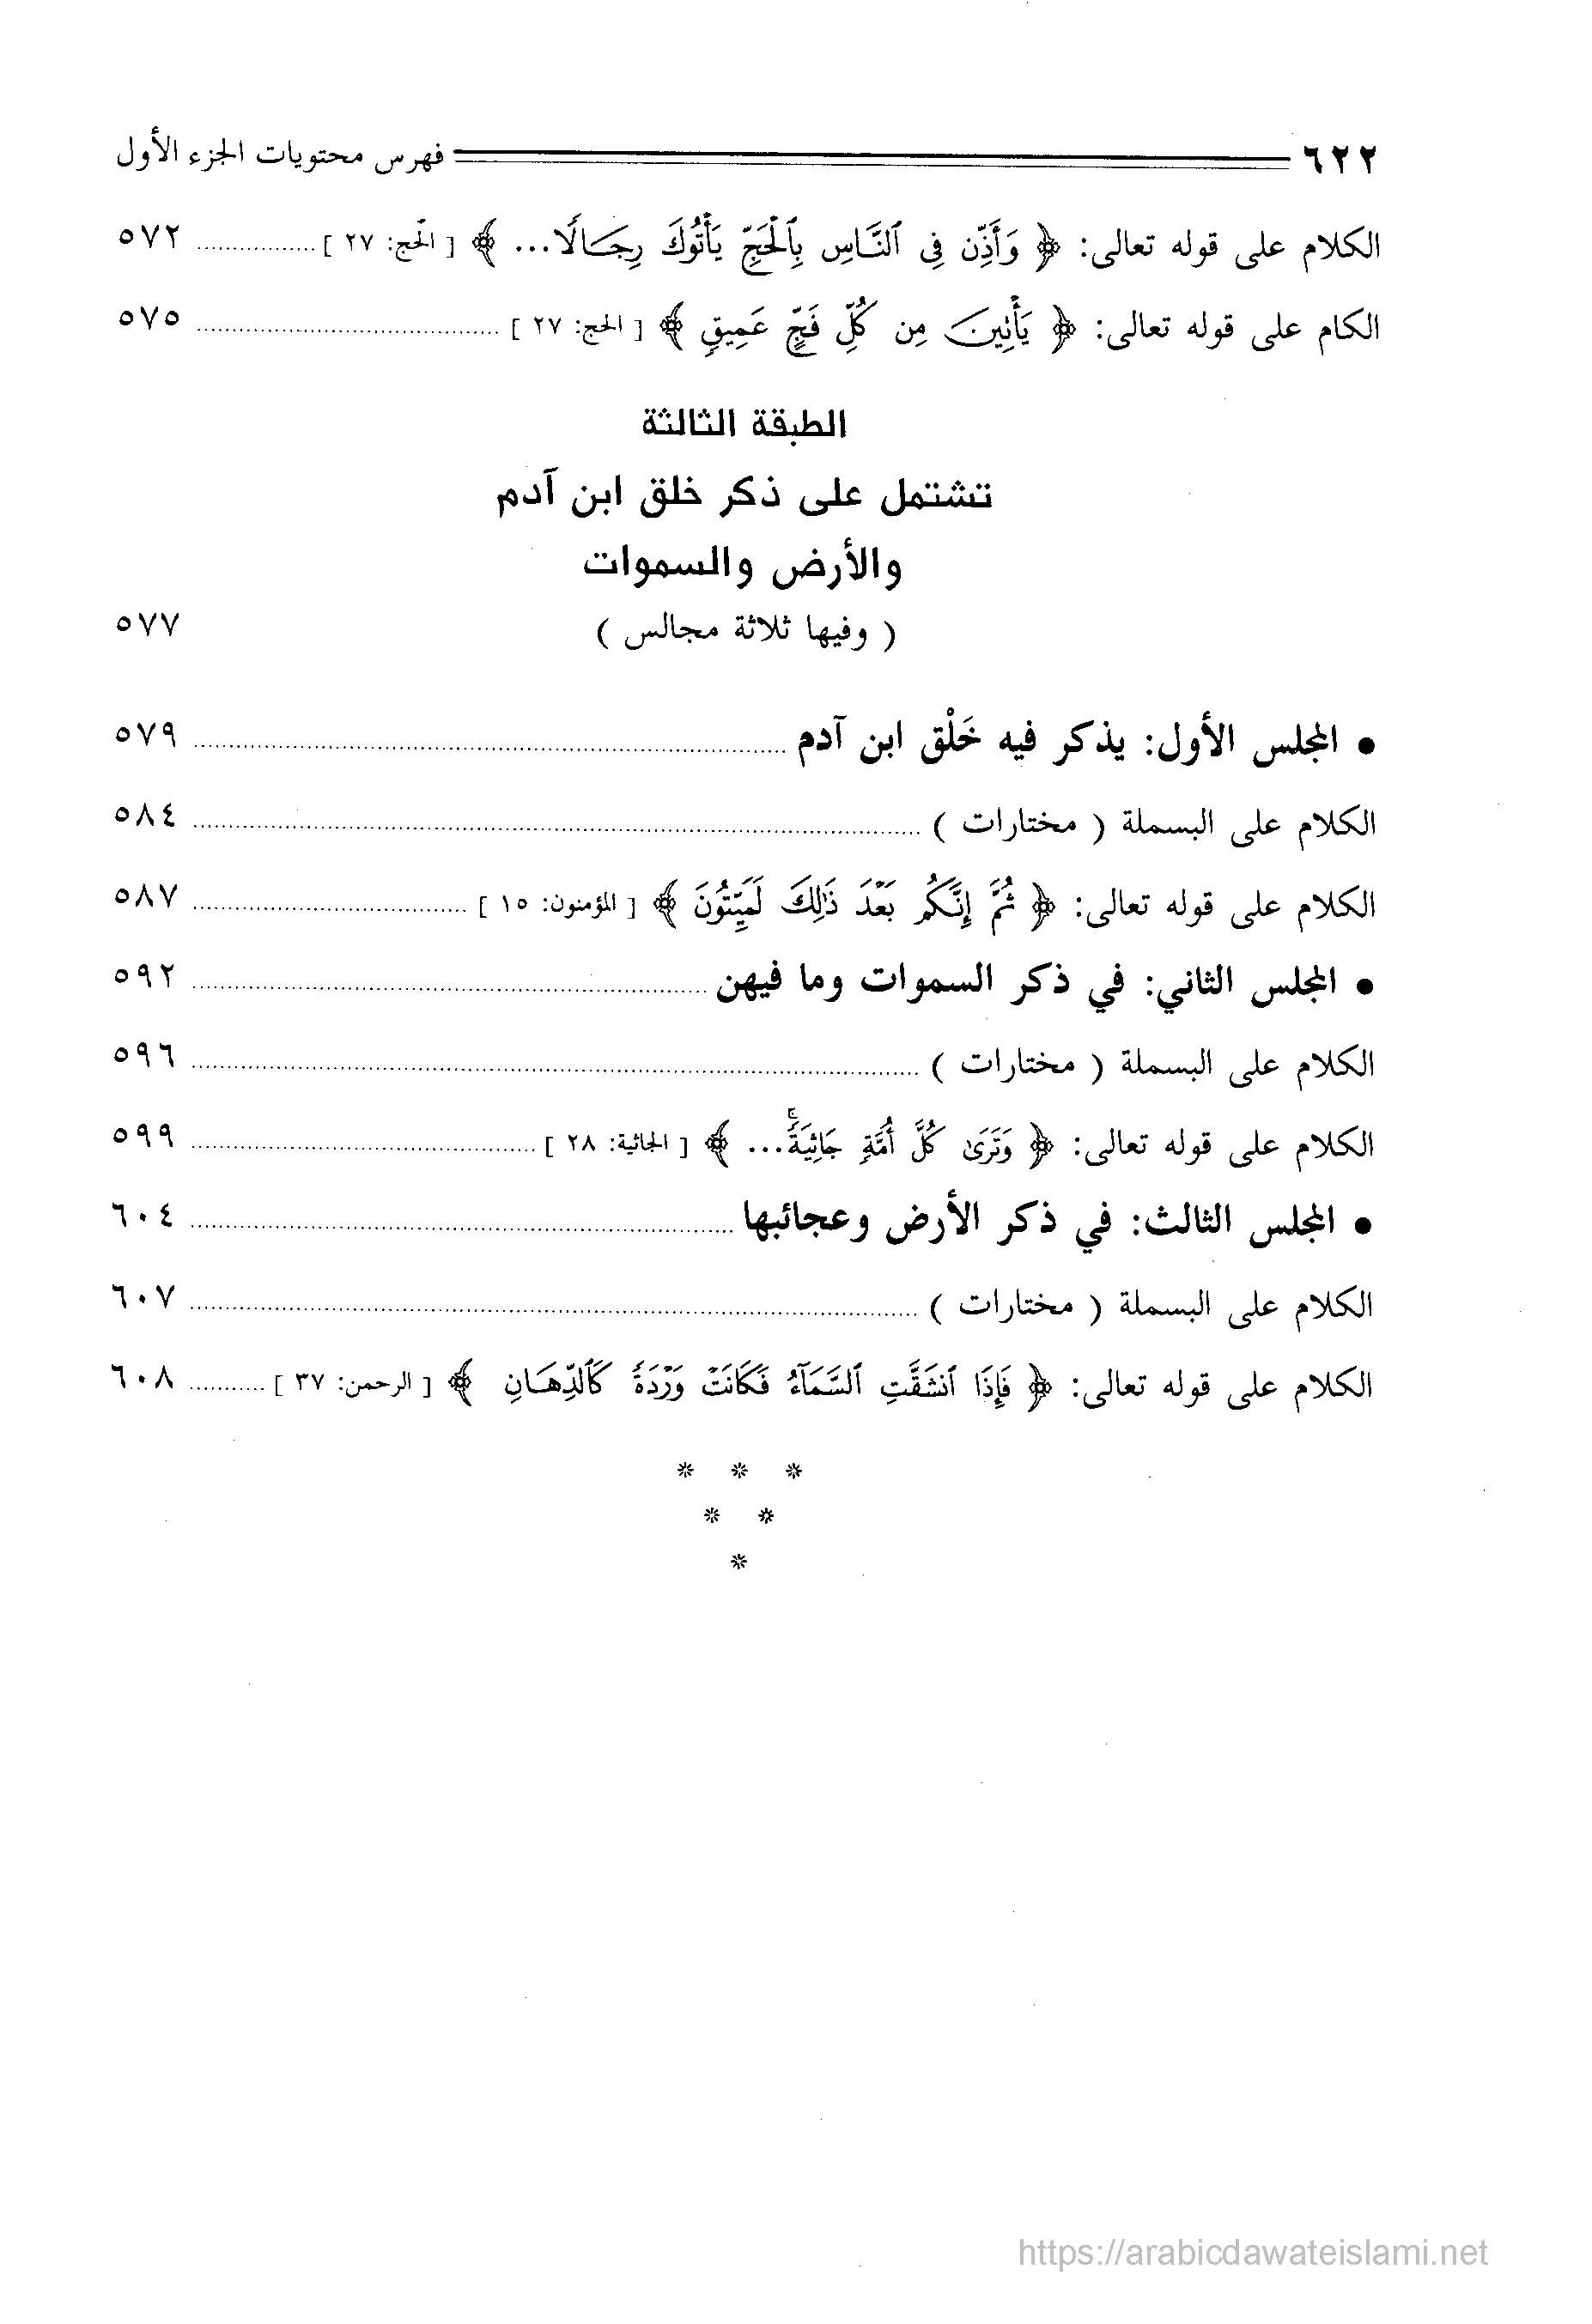 ٦٢٢ فهرس محتويات الجزء الأول
الكلام على قوله تعالى: ﴿ وَأَذِّن فِى ٱلنَّاسِ بِٱلْحَجِّ يَأْتُوكَ رِجَالًا... ﴾ [ الحج: ٢٧ ] ................ ٥٧٢
الكام على قوله تعالى: ﴿ يَأْتِينَ مِن كُلِّ فَجٍّ عَمِيقٍ ﴾ [ الحج: ٢٧ ] ................ ٥٧٥
الطبقة الثالثة
تشتمل على ذكر خلق ابن آدم
والأرض والسموات
( وفيها ثلاثة مجالس ) ٥٧٧
● المجلس الأول: يذكر فيه خَلْق ابن آدم ................ ٥٧٩
الكلام على البسملة ( مختارات ) ................ ٥٨٤
الكلام على قوله تعالى: ﴿ ثُمَّ إِنَّكُم بَعْدَ ذَٰلِكَ لَمَيِّتُونَ ﴾ [ المؤمنون: ١٥ ] ................ ٥٨٧
● المجلس الثاني: في ذكر السموات وما فيهن ................ ٥٩٢
الكلام على البسملة ( مختارات ) ................ ٥٩٦
الكلام على قوله تعالى: ﴿ وَتَرَىٰ كُلَّ أُمَّةٍ جَاثِيَةً ۚ... ﴾ [ الجاثية: ٢٨ ] ................ ٥٩٩
● المجلس الثالث: في ذكر الأرض وعجائبها ................ ٦٠٤
الكلام على البسملة ( مختارات ) ................ ٦٠٧
الكلام على قوله تعالى: ﴿ فَإِذَا ٱنشَقَّتِ ٱلسَّمَآءُ فَكَانَتْ وَرْدَةً كَٱلدِّهَانِ ﴾ [ الرحمن: ٣٧ ] ........... ٦٠٨
* * *
* *
*
https://arabicdawateislami.net